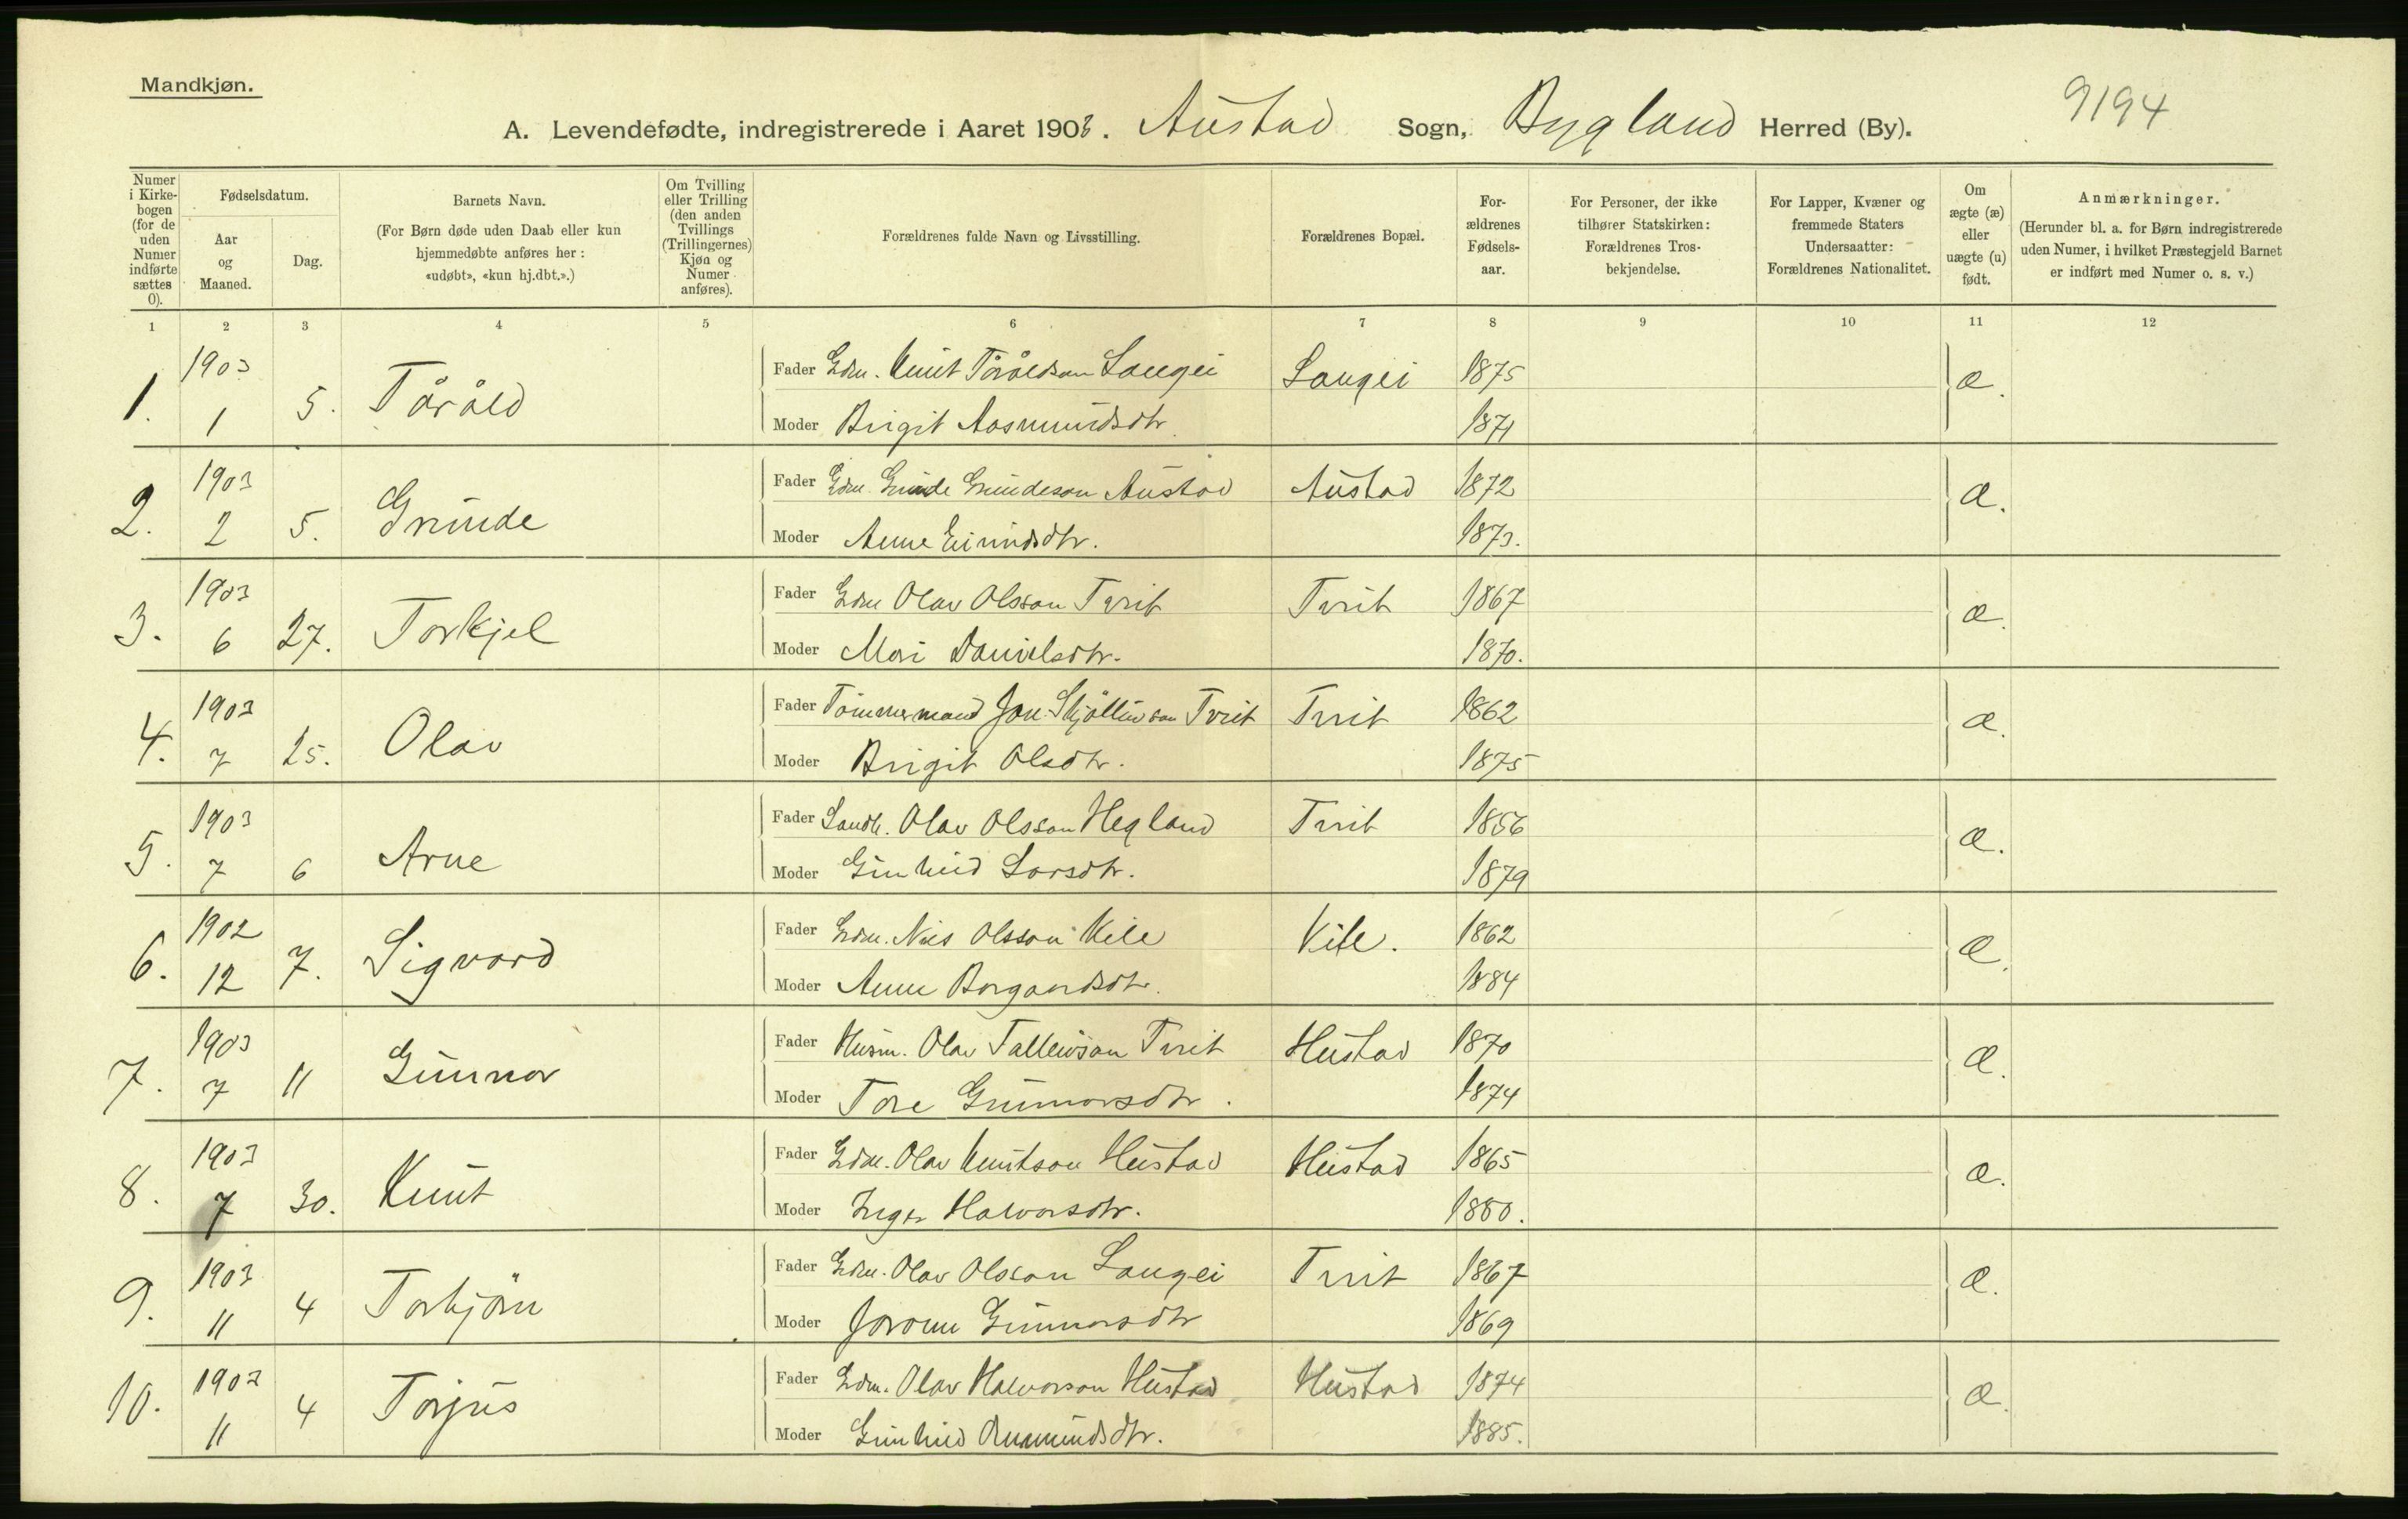 Mandkjøn.
9194
A. Levendefødte, indregistrerede i Aaret 1903. Austad Sogn, Bygland Herred (By).
Numer i Kirkebogen (for de uden Numer indførte sættes 0).
Fødselsdatum.
Aar og Maaned.
Dag.
Barnets Navn.
(For Børn døde uden Daab eller kun hjemmedøbte anføres her: «udøbt», «kun hj.dbt.».)
Om Tvilling eller Trilling (den anden Tvillings (Trillingernes) Kjøn og Numer anføres).
Forældrenes fulde Navn og Livsstilling.
Forældrenes Bopæl.
Forældrenes Fødselsaar.
For Personer, der ikke tilhører Statskirken: Forældrenes Trosbekjendelse.
For Lapper, Kvæner og fremmede Staters Undersaatter: Forældrenes Nationalitet.
Om ægte (æ) eller uægte (u) født.
Anmærkninger.
(Herunder bl. a. for Børn indregistrerede uden Numer, i hvilket Præstegjeld Barnet er indført med Numer o. s. v.)
1 2 3 4 5 6 7 8 9 10 11 12
1903 Fader Gdm. Knut Tåråldson Langei Langei 1875
1. 1 5. Tåråld æ.
Moder Birgit Aasmundsdtr 1871
1903 Fader Gdm. Gunde Grundeson Austad Austad 1872
2. 2 5. Grunde æ.
Moder Anne Eivindsdtr. 1873.
1903 Fader Gdm Olav Olsson Tveit Tveit 1867
3. 6 27. Torkjel æ.
Moder Mari Danielsdtr. 1870.
1903 Fader Tømmermand Jon Skjøllivson Tveit Tveit 1862
4. 7 25. Olav æ.
Moder Birgit Olsdtr. 1875
1903 Fader Landh. Olav Olsson Hegland Tveit 1856
5. 7 6 Arne æ.
Moder Gunhild Larsdtr. 1879
1902 Fader Gdm. Nils Olsson Kile Kile. 1862
6. 12 7. Sigvard æ.
Moder Anne Borgarsdtr. 1884
1903 Fader Husm. Olav Talleivson Tveit Hustad 1870
7. 7 11 Gunnar æ.
Moder Tore Gunnarsdtr. 1874
1903 Fader Gdm. Olav Knutson Hustad Hustad 1865
8. 7 30. Knut æ.
Moder Inger Halvorsdtr. 1880.
1903 Fader Gdm. Olav Olsson Langei Tveit 1867
9. 11 4 Torbjörn æ.
Moder Joronn Gunnarsdtr 1869
1903 Fader Gdm. Olav Halvorson Hustad Hustad 1874
10. 11 4 Torjus æ.
Moder Gunhild Aanundsdtr. 1885.